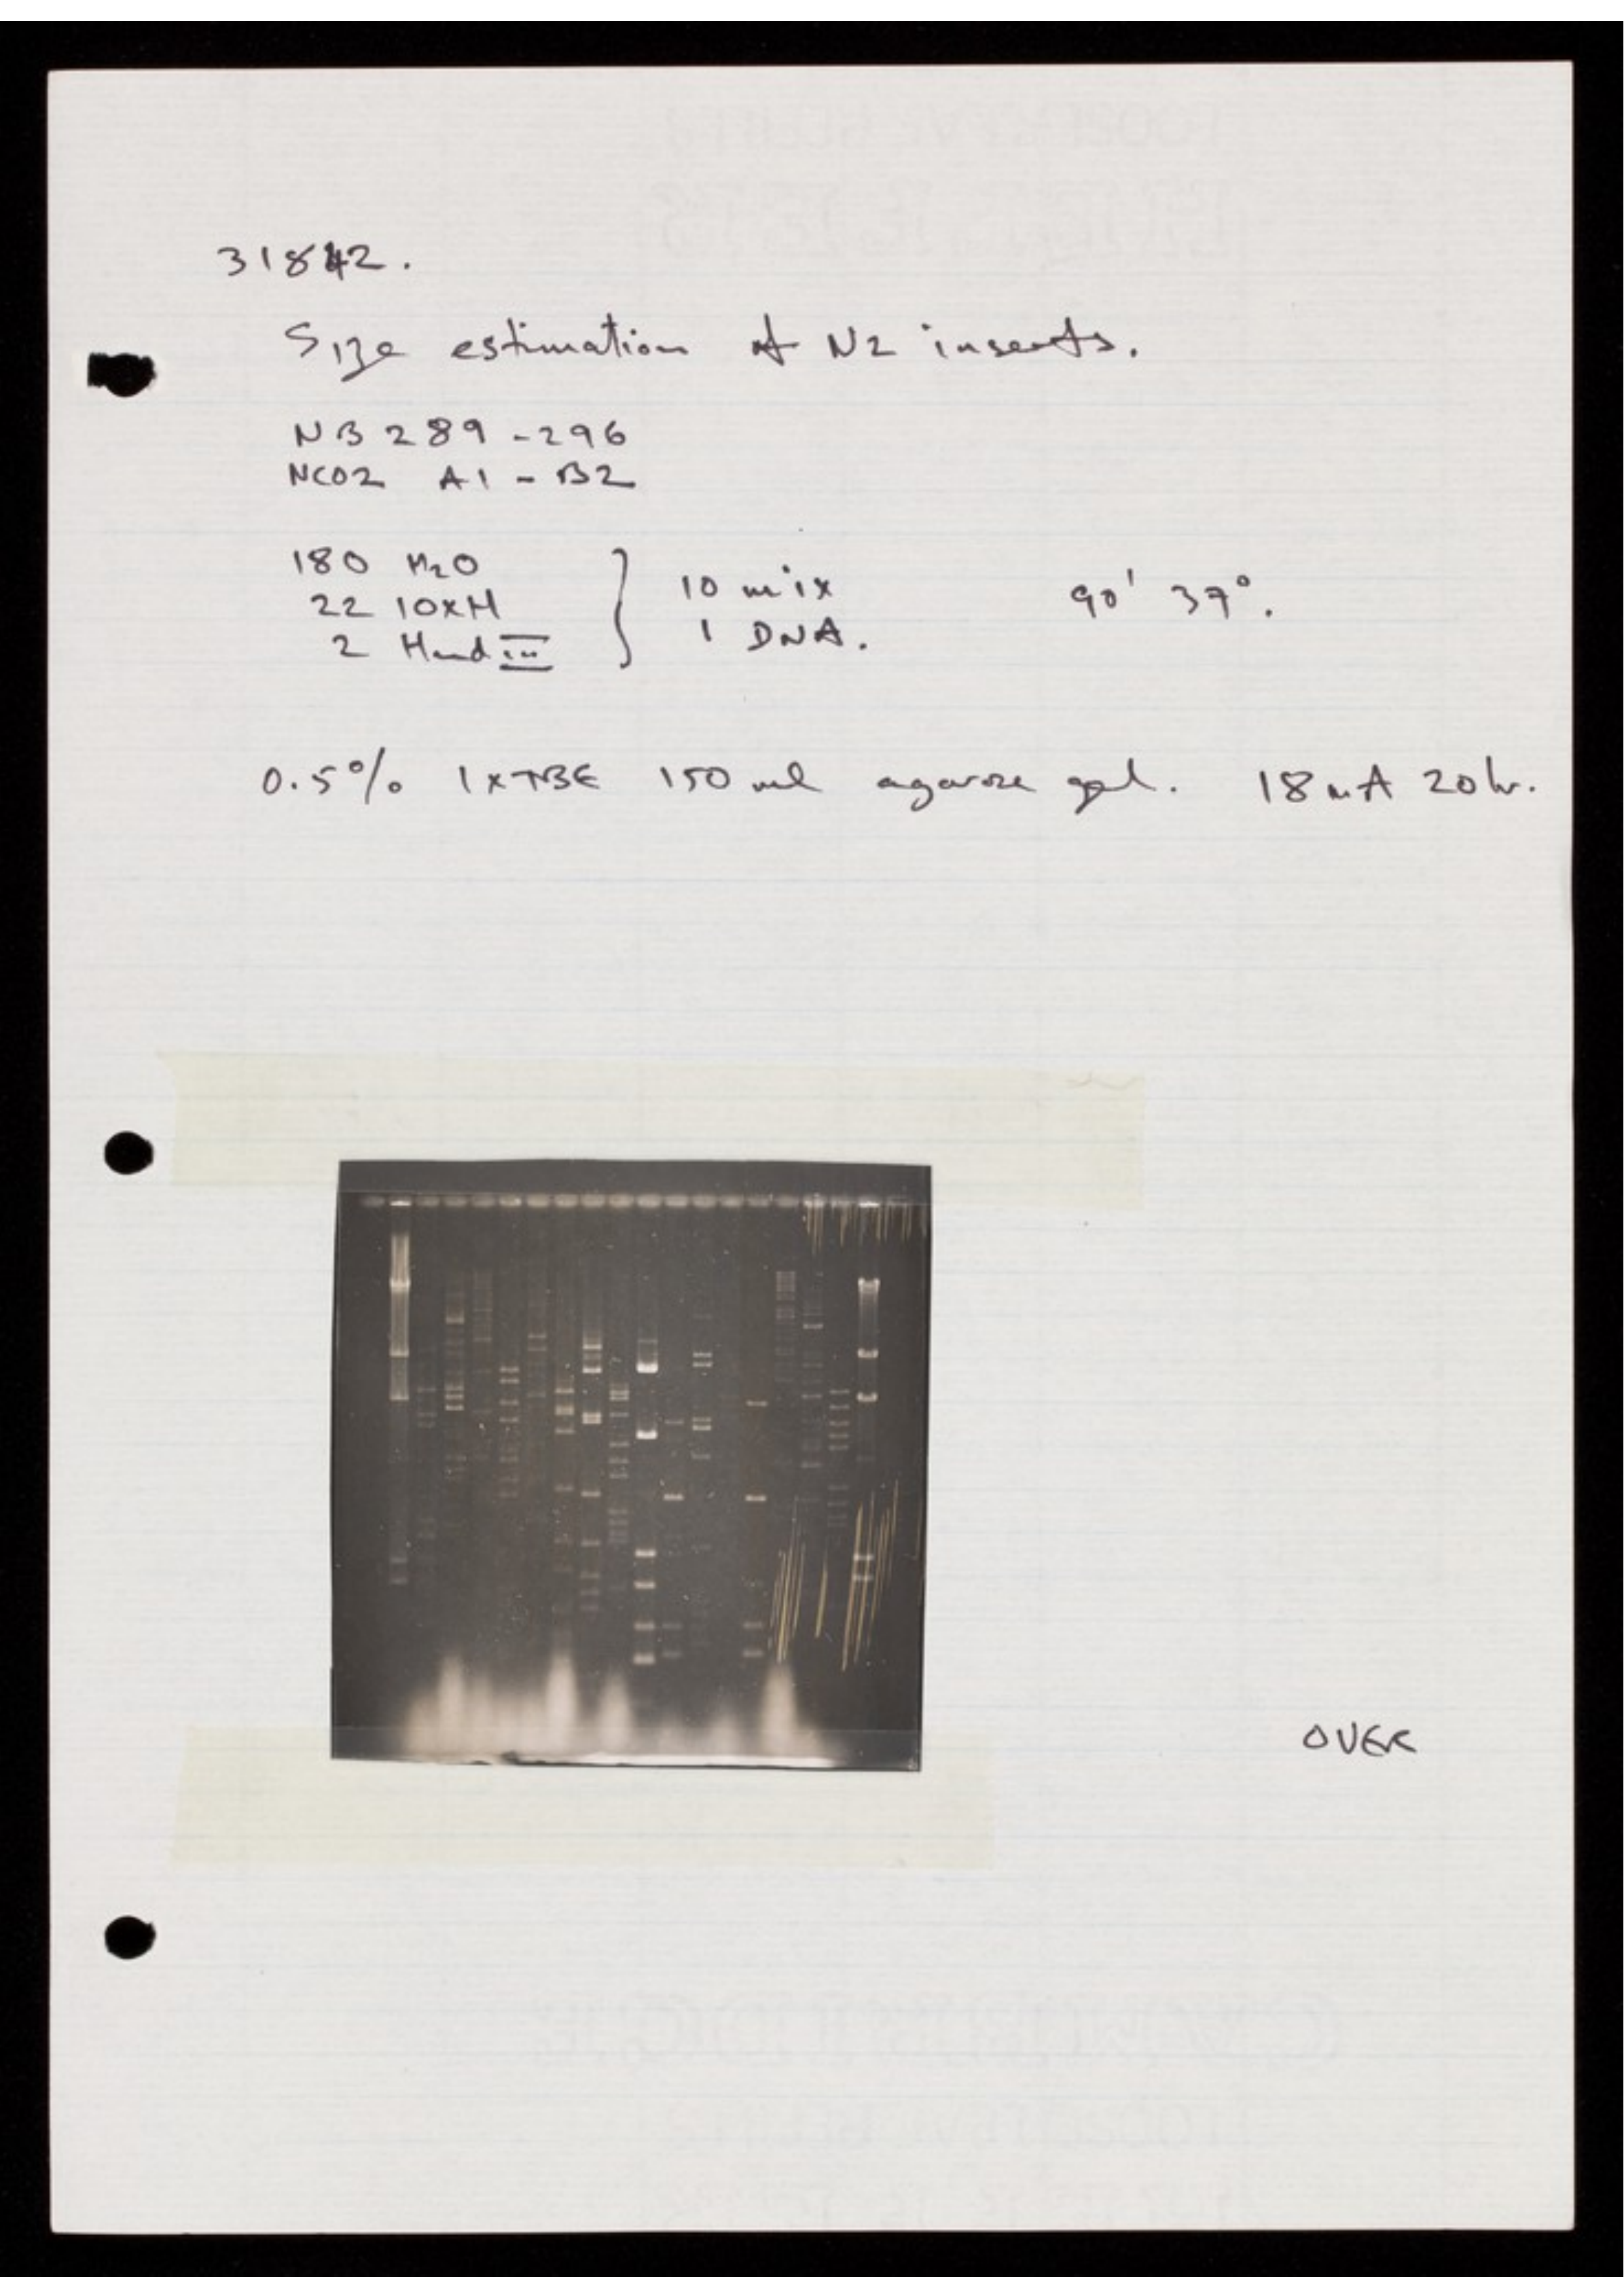 Size estimation of N2 inserts.
NB 289 - 296
NCO2 A1 - B2
180 H2O
22 10xH
2 Hind III
10 mix
1 DNA.
90' 37°.
0.5% 1xTBE 150 ml agarose gel. 18 mA 20 hr.
OVER